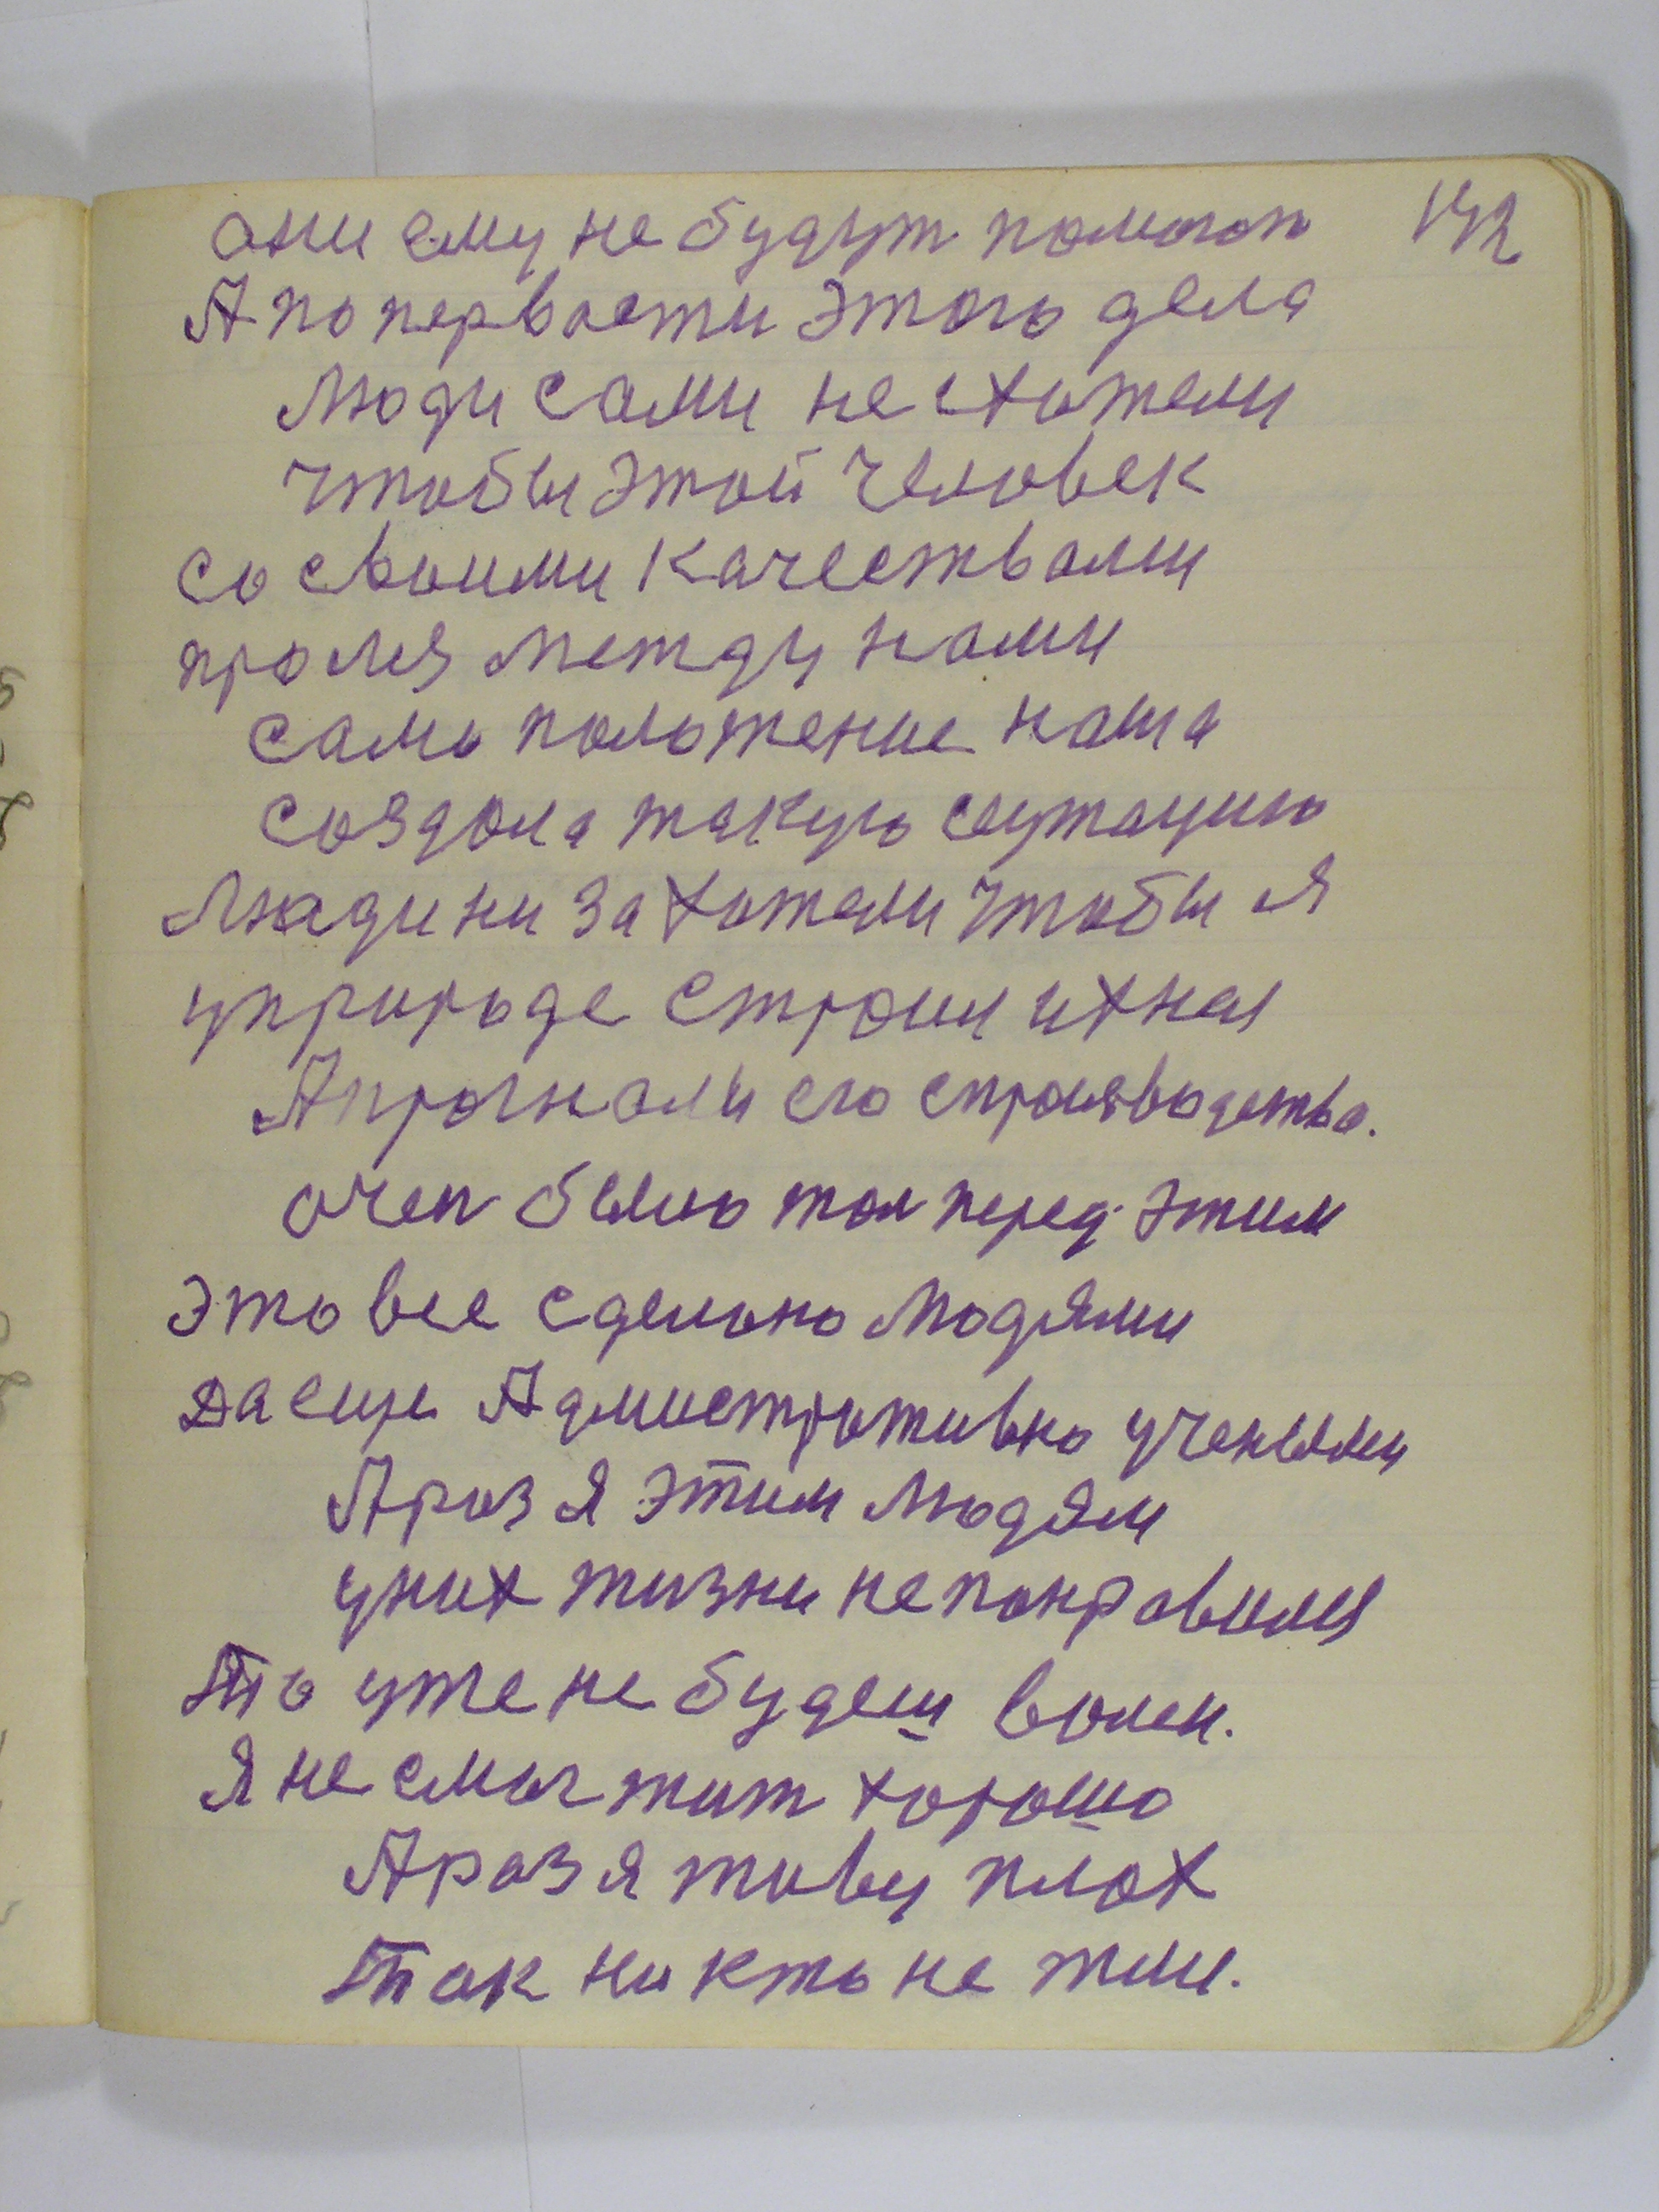 они ему не будут помогат 142
А по первости этого дела
люди сами не схотели
чтобы этой человек
со своими качествами
пролез между нами
само положение наша
создала такую сиутацию
Люди ни захотели чтобы я
уприроде строил ихная
А прогнали его спроизводства.
очен было там перед этим
это все сделано людями
Да еще Адмистротивно учеными
А раз я этим людям
уних жизни не понравился
То уже не будеш волен.
Я не смог жит хорошо
А раз я живу плох
Так ни кто не жили.